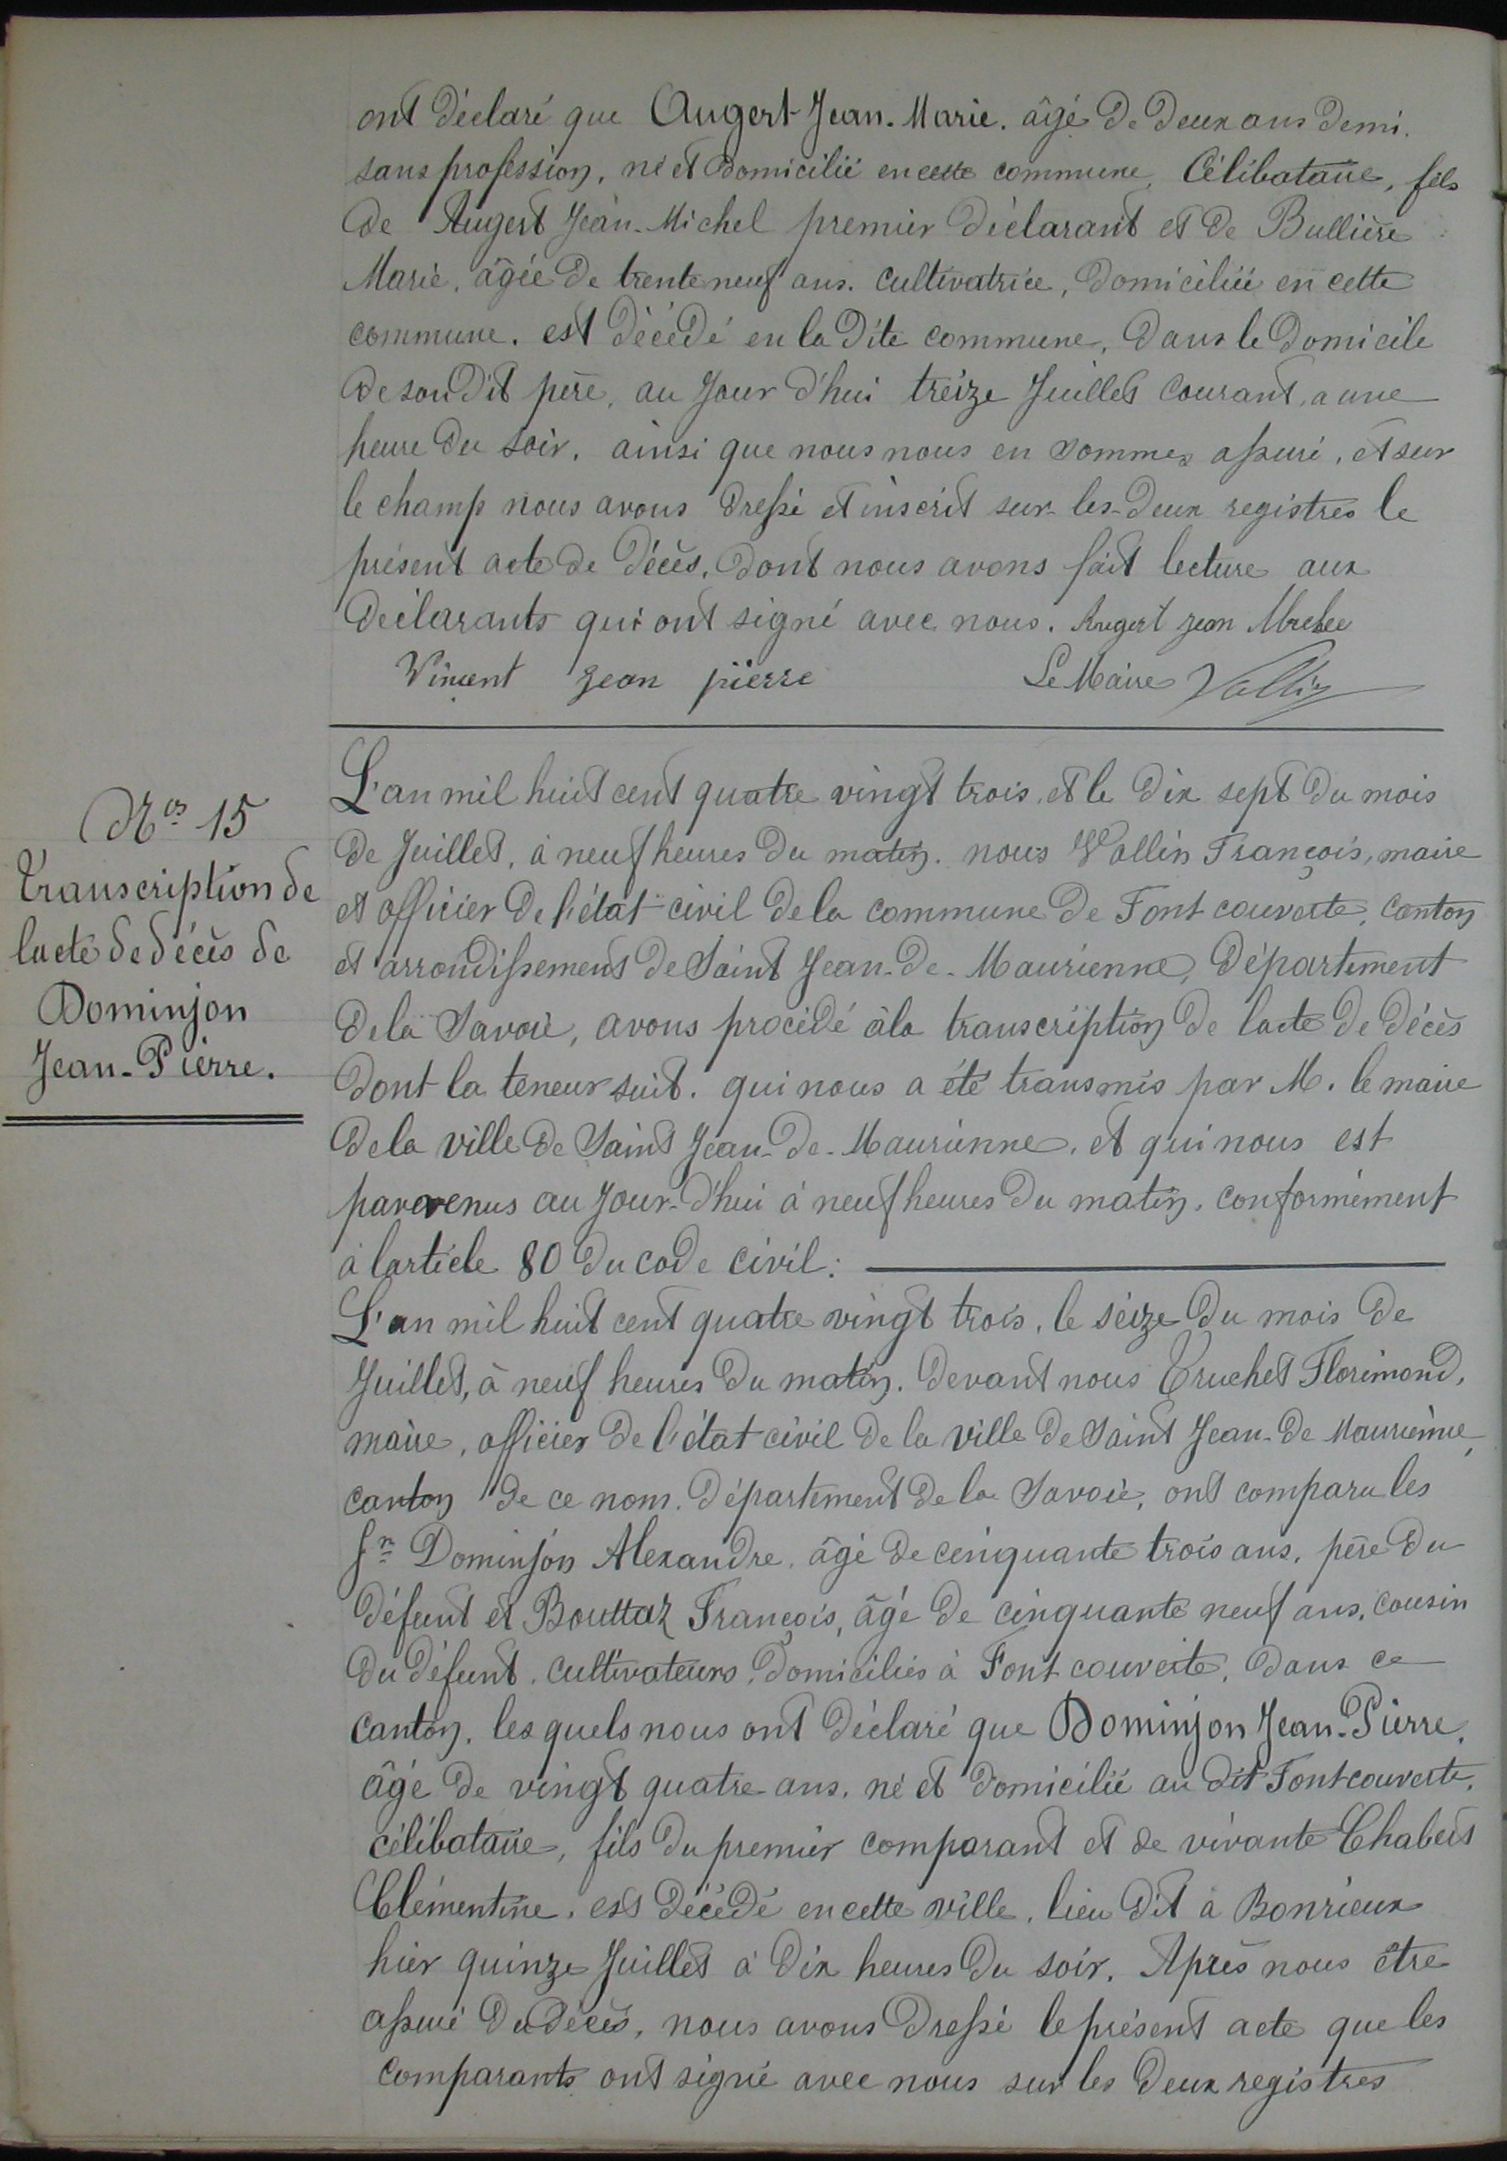 ont déclaré que Augert Jean-Marie. âgé de deux ans demi.
sans profession, né et domicilié en cette commune, Célibataire, fils
de Augert Jean-Michel premier déclarant et de Bullière
Marie, âgée de trente neuf ans. cultivatrice, domiciliée en cette
commune. est décédé en la dite commune, dans le domicile
de son dit père, au jour d'hui treize Juillet courant, a une
heure du soir, ainsi que nous nous en sommes assuré, et sur
le champ nous avons dressé et inscrit sur les deux registres le
présent acte de décès, dont nous avons fait lecture aux
déclarants qui ont signé avec nous. Augert jean Michel
Vincent jean pierre Le Maire Vallin
Nos 15
Transcription de
lacte de décès de
Dominjon
Jean-Pierre.
L'an mil huit cent quatre vingt trois, et le dix sept du mois
de Juillet, à neuf heures du matin. nous Vallin François, maire
et officier de l'état civil de la commune de Font couverte, canton
et arrondissement de Saint Jean-de-Maurienne, Département
de la Savoie, avons procédé à la transcription de lacte de décès
dont la teneur suit. qui nous a été transmis par M. le maire
de la ville de Saint Jean-de-Maurienne, et qui nous est
parvenus au jour-d'hui à neuf heures du matin, conformément
à larticle 80 du code civil:
L'an mil huit cent quatre vingt trois, le seize du mois de
Juillet, à neuf heures du matin. devant nous Truchet Florimond,
maire, officier de l'état civil de la ville de Saint Jean-de Maurienne,
canton de ce nom. département de la Savoie, ont comparu les
Srs Dominjon Alexandre, âgé de cinquante trois ans, père du
défunt et Bouttaz François, âgé de cinquante neuf ans, cousin
du défunt, cultivateurs, domiciliés à Font couverte, dans ce
canton, les quels nous ont déclaré que Dominjon Jean-Pierre,
âgé de vingt quatre ans, né et domicilié au dit Fontcouverte,
célibataire, fils du premier comparant et de vivante Chabert
Clémentine, est décédé en cette ville, lieu dit à Bonrieux
hier quinze Juillet à dix heures du soir. Après nous être
assuré du décès, nous avons dressé le présent acte que les
comparants ont signé avec nous sur les deux registres